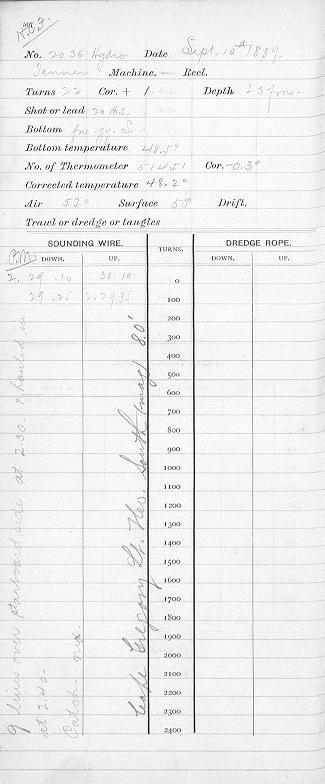 No. 2036 Hydro Date Sept. 10th 1889.
Tanner Machine. Reel.
Turns 22 Cor. + 1 Depth 23 fms.
Shot or lead 20 lbs.
Bottom fne. gy. S.
Bottom temperature 48.5°
No. of Thermometer 51451 Cor. -0.3°
Corrected temperature 48.2°
Air 52° Surface 50° Drift.
Trawl or dredge or tangles
SOUNDING WIRE. TURNS. DREDGE ROPE.
P.M. DOWN. UP. DOWN. UP.
2. 29 .10 30.10 0
29 .25 2.29.35 100
200
300
400
500
600
700
800
900
1000
1100
1200
1300
1400
1500
1600
1700
1800
1900
2000
2100
2200
2300
2400
9 lines over starboard side at 2.30 & hauled in
at 2.40.
Catch - nix.
Cape Gregory Lt. Ho. South (mag) 8.0'